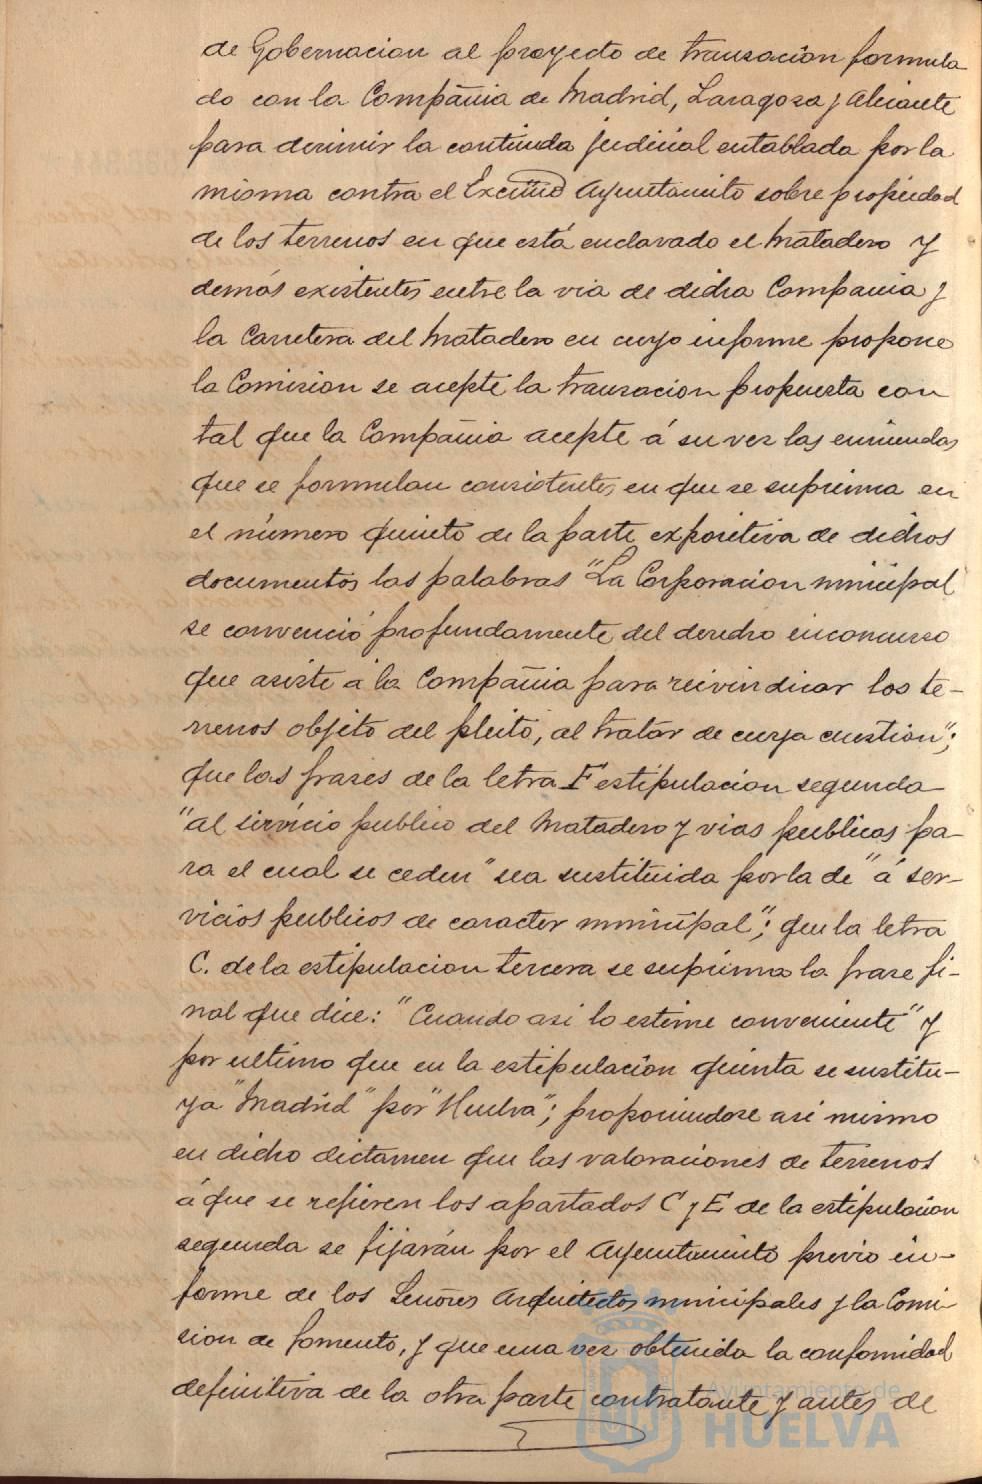 de Gobernacion al proyecto de transación formula
do con la Compañia de Madrid, Zaragoza y Alicante
para dirimir la contienda judicial entablada por la
misma contra el Excmo Ayuntamiento sobre propiedad
de los terrenos en que está enclavado el Matadero y
demás existentes entre la via de dicha Compañia y
la Carretera del Matadero en cuyo informe propone
la Comision se acepte la transacion propuesta con
tal que la Compañia acepte á su vez las enmiendas
que se formulan consistentes en que se suprima en
el número quinto de la parte expositiva de dichos
documentos las palabras "La Corporacion municipal
se convenció profundamente del derecho inconcuso
que asiste á la Compañia para reivindicar los te-
rrenos objeto del pleito, al tratar de cuya cuestion";
que las frases de la letra F estipulacion segunda
"al servicio publico del Matadero y vias publicas pa-
ra el cual se ceden" sea sustituida por la de "á ser-
vicios publicos de caracter municipal"; que la letra
C. de la estipulacion tercera se suprima la frase fi-
nal que dice: "Cuando asi lo estime conveniente" y
por ultimo que en la estipulación quinta se sustitu-
ya "Madrid" por "Huelva"; proponiendose asi mismo
en dicho dictamen que las valoraciones de terrenos
á que se refieren los apartados C y E de la estipulacion
segunda se fijarán por el Ayuntamiento previo in-
forme de los Señores Arquitectos municipales y la Comi-
sion de fomento, y que una vez obtenida la conformidad
definitiva de la otra parte contratante y antes de
Ayuntamiento de
HUELVA